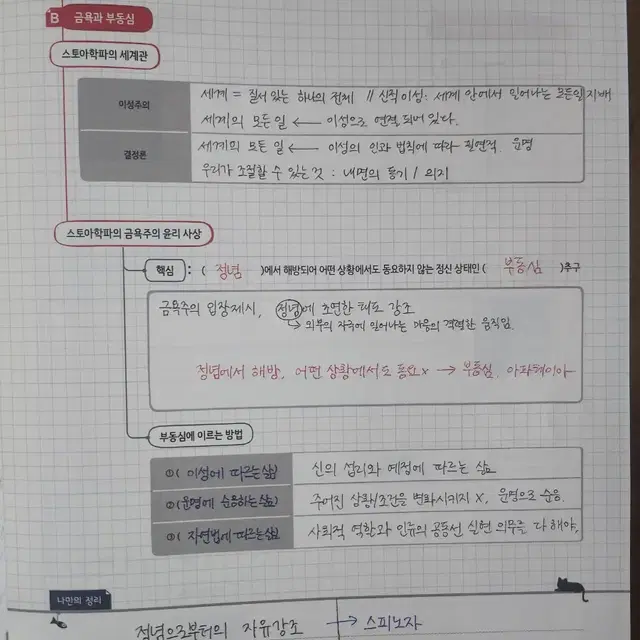 B 금욕과 부동심
스토아학파의 세계관
이성주의
세계 = 질서 있는 하나의 전체 // 신적 이성: 세계 안에서 일어나는 모든일 지배
세계의 모든 일 ← 이성으로 연결되어 있다.
결정론
세계의 모든 일 ← 이성의 인과 법칙에 따라 필연적. 운명
우리가 조절할 수 있는 것 : 내면의 동기 / 의지
스토아학파의 금욕주의 윤리 사상
핵심 : ( 정념 )에서 해방되어 어떤 상황에서도 동요하지 않는 정신 상태인 ( 부동심 )추구
금욕주의 입장제시, 정념에 초연한 태도 강조
→ 외부의 자극에 일어나는 마음의 격렬한 움직임.
정념에서 해방, 어떤 상황에서도 동요x → 부동심, 아파테이아
부동심에 이르는 방법
①( 이성에 따르는 삶 ) 신의 섭리와 예정에 따르는 삶
②(운명에 순응하는 삶) 주어진 상황/조건을 변화시키지 X, 운명으로 순응.
③( 자연법에 따르는 삶 ) 사회적 역할과 인류의 공동선 실현 의무를 다 해야,
나만의 정리
정념으로부터의 자유강조 → 스피노자